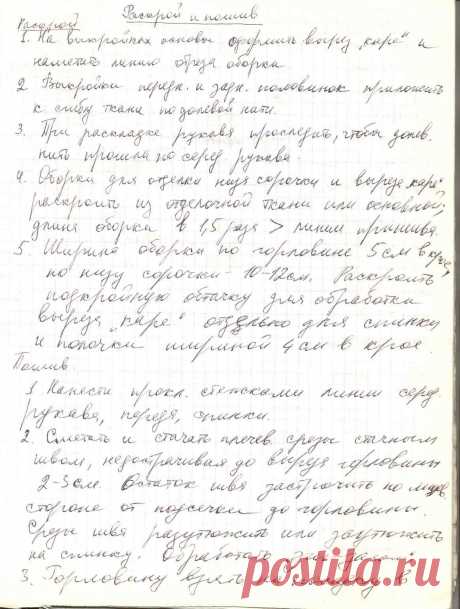 Раскрой и пошив
Раскрой
1. На выкройках основы оформить вырез "каре" и
наметить линию отреза оборки.
2 Выкройки передн. и задн. половинок приложить
к сгибу ткани по долевой нити.
3. При раскладке рукава проследить, чтобы долев.
нить прошла по серед. рукава.
4. Оборки для отделки низа сорочки и выреза "каре"
раскроить из отделочной ткани или основной,
длина оборки в 1,5 раза > линии пришива.
5. Ширина оборки по горловине 5 см в крое,
по низу сорочки - 10-12см. Раскроить
подкройную обтачку для обработки
выреза "каре" отдельно для спинки
и полочки шириной 4 см в крое.
Пошив.
1 Нанести прокл. стежками линии серед.
рукава, переда, спинки.
2. Сметать и стачать плечев. срезы стачным
швом, недострачивая до выреза горловины
2-3 см. Остаток шва застрочить по лицев.
стороне от подсечки до горловины.
Срезы шва разутюжить или заутюжить
на спинку. Обработать
3. Горловину в
postila.ru